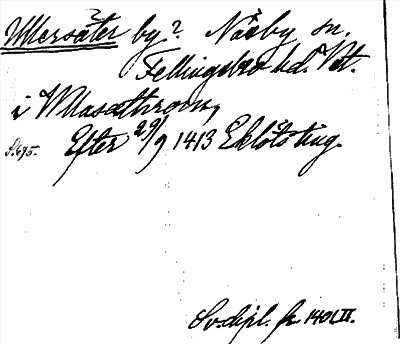 Ullersäter by? Näsby sn.
Fellingsbro hd. Vstl.
i Ullasæthrom,
S. 675. Efter 29/9 1413 Eklöts ting.
Sv. dipl. fr 1401 II.